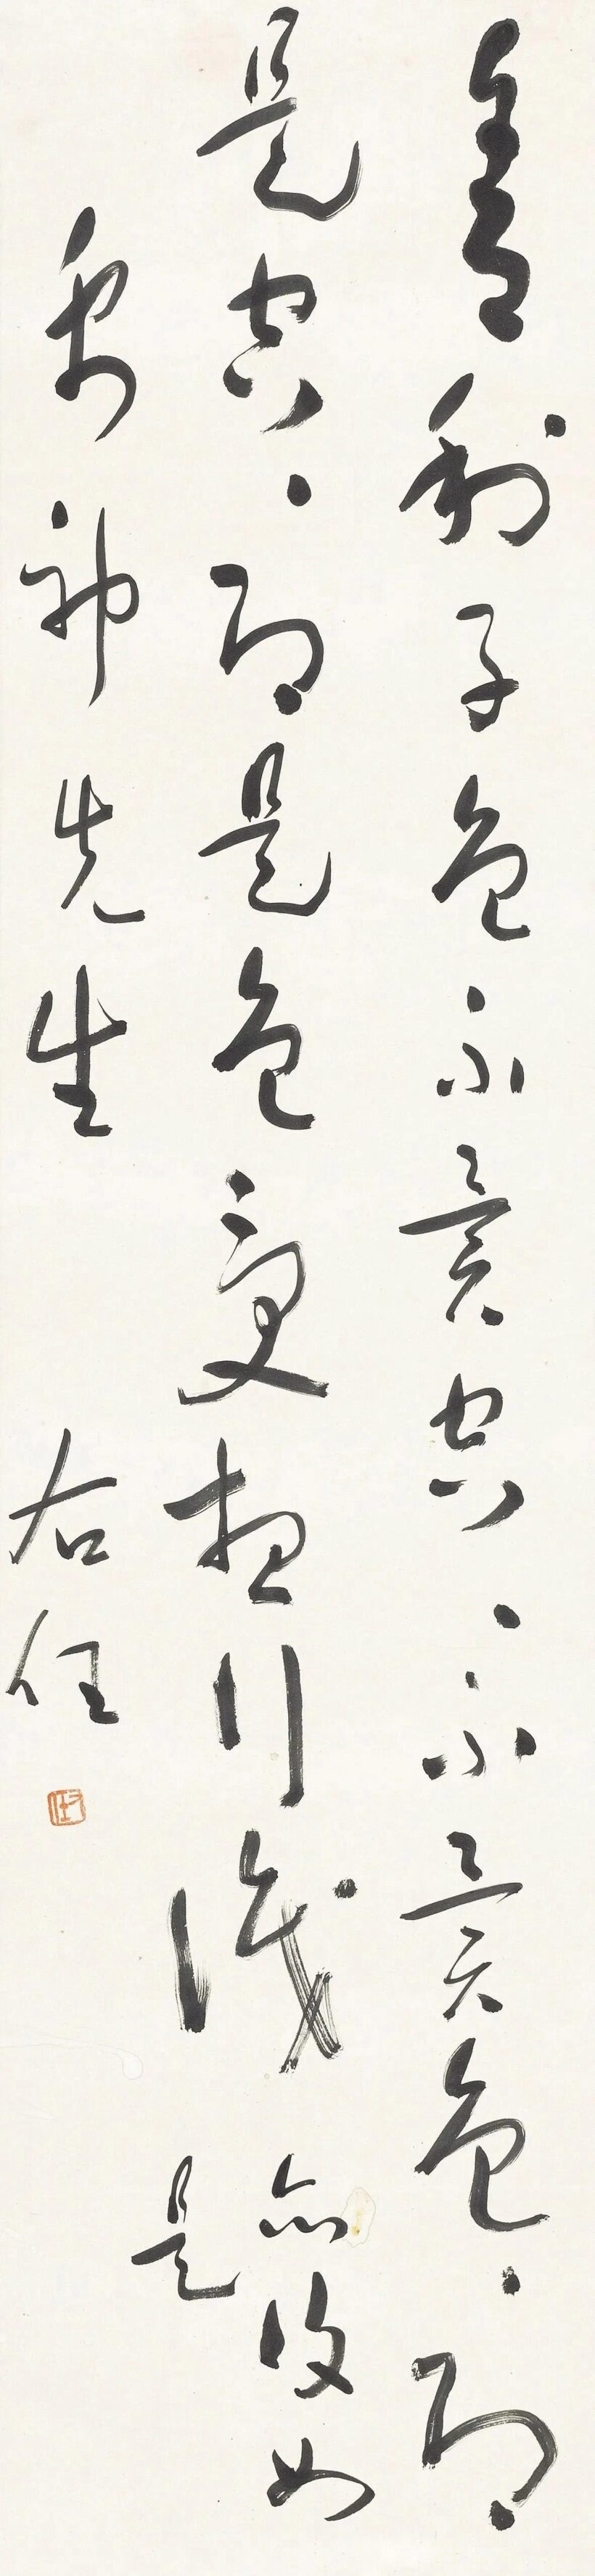 舍利子色不異空、不異色、即
是空、即是色受想行識亦復如是
神先生 右任
右任